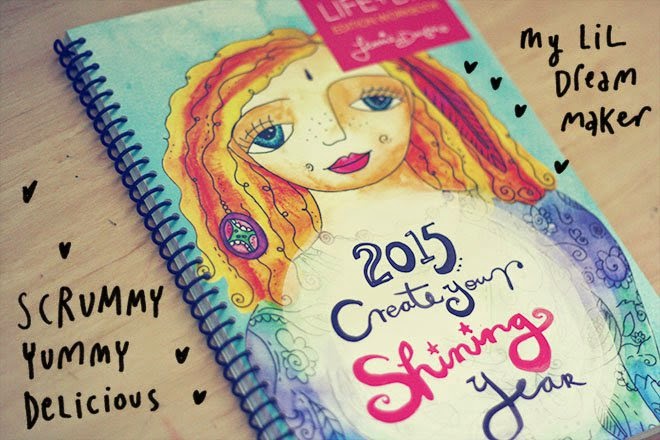 LIFE
EDITION WORKBOOK
Leonie Dawson
my LiL
Dream
maker
2015
Create your
Shining
Year
SCRUMMY
YUMMY
DELICIOUS